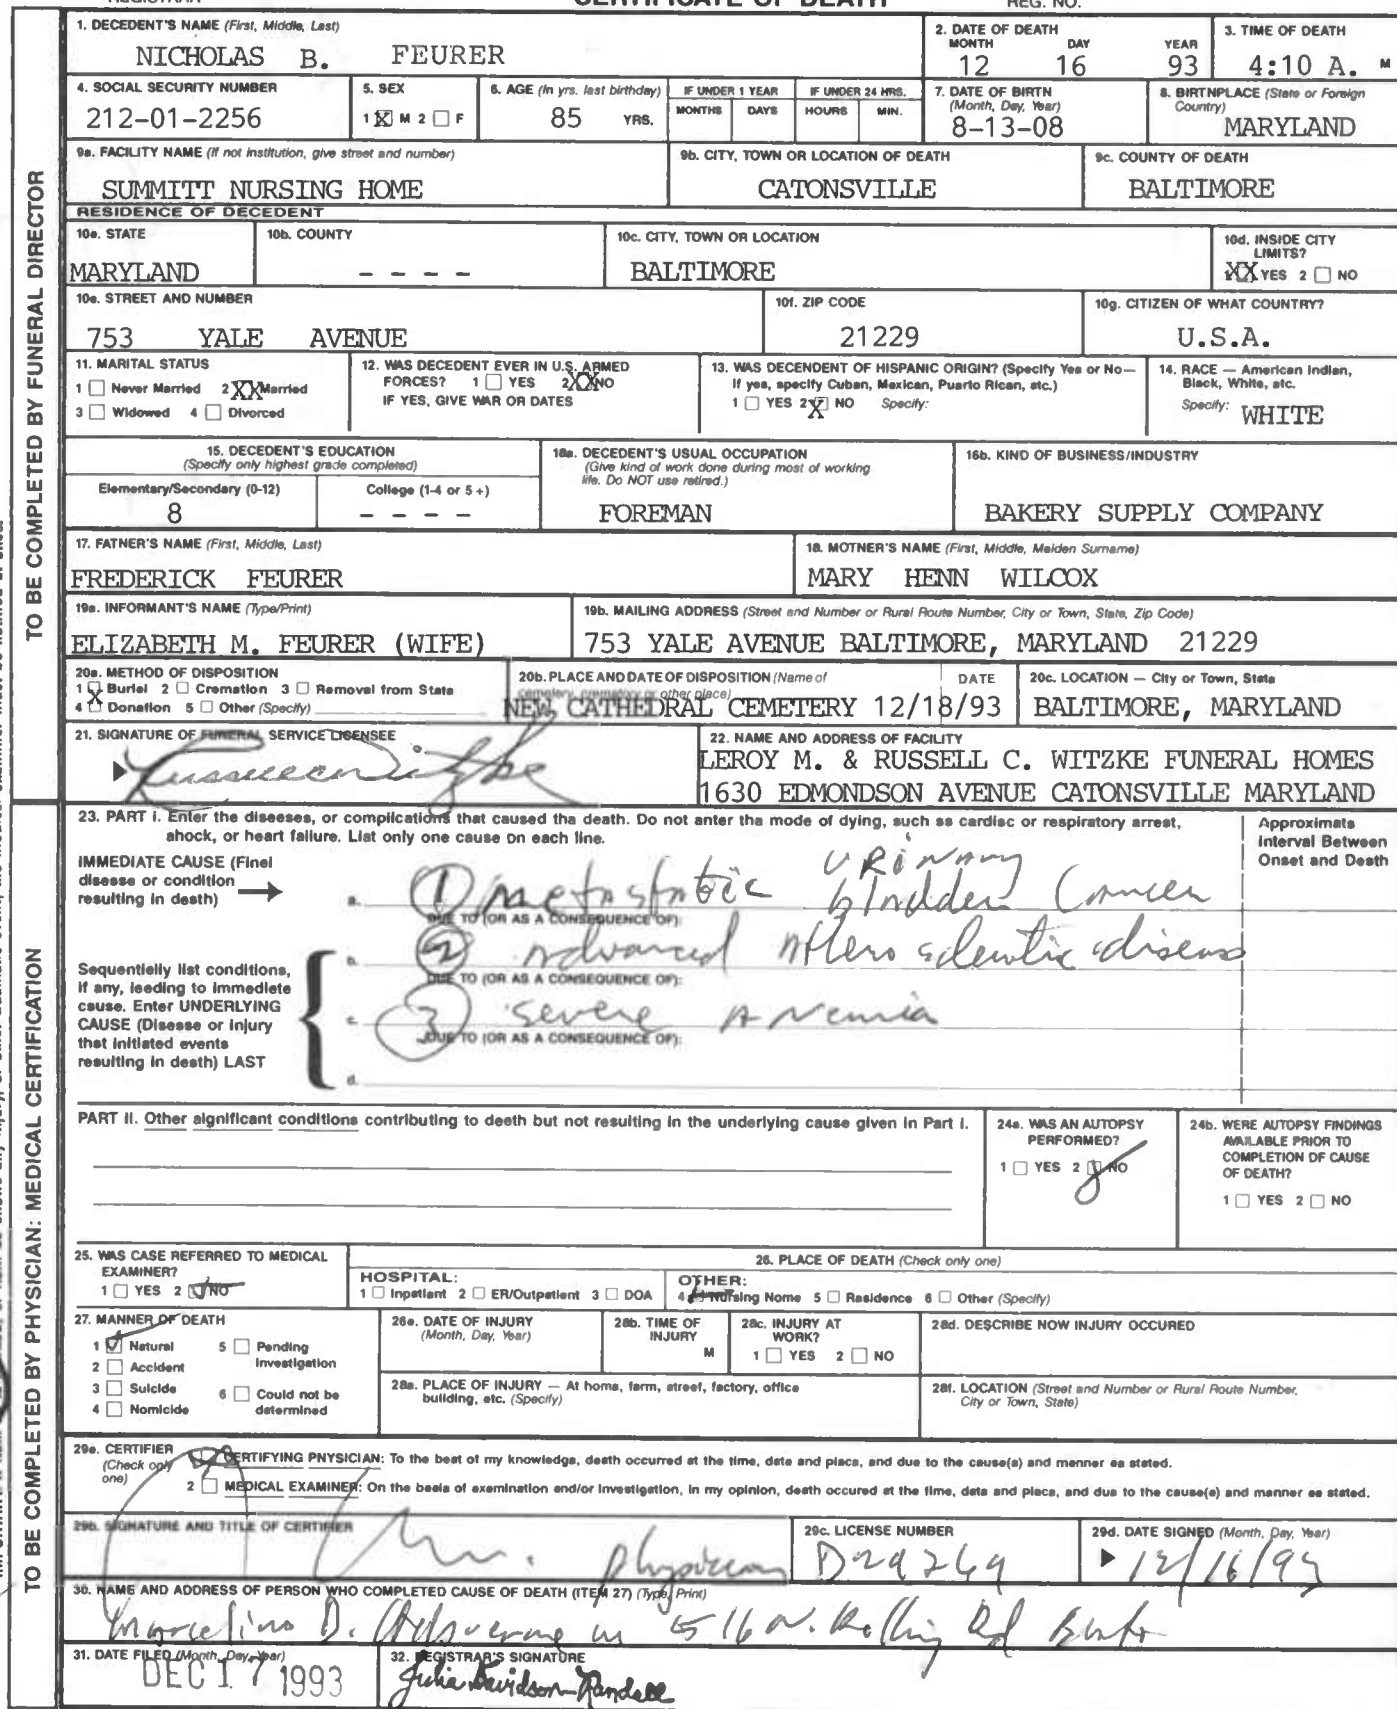 CERTIFICATE OF DEATH
REG. NO.
1. DECEDENT'S NAME (First, Middle, Last)
NICHOLAS B. FEURER
2. DATE OF DEATH
MONTH DAY YEAR
12 16 93
3. TIME OF DEATH
4:10 A. M
4. SOCIAL SECURITY NUMBER
212-01-2256
5. SEX
1 X M 2 F
6. AGE (In yrs. last birthday)
85 YRS.
IF UNDER 1 YEAR
MONTHS DAYS
IF UNDER 24 HRS.
HOURS MIN.
7. DATE OF BIRTH
(Month, Day, Year)
8-13-08
8. BIRTHPLACE (State or Foreign
Country)
MARYLAND
9a. FACILITY NAME (If not institution, give street and number)
SUMMITT NURSING HOME
9b. CITY, TOWN OR LOCATION OF DEATH
CATONSVILLE
9c. COUNTY OF DEATH
BALTIMORE
RESIDENCE OF DECEDENT
10a. STATE
MARYLAND
10b. COUNTY
- - - -
10c. CITY, TOWN OR LOCATION
BALTIMORE
10d. INSIDE CITY
LIMITS?
XX YES 2 NO
10e. STREET AND NUMBER
753 YALE AVENUE
10f. ZIP CODE
21229
10g. CITIZEN OF WHAT COUNTRY?
U.S.A.
11. MARITAL STATUS
1 Never Married 2 XX Married
3 Widowed 4 Divorced
12. WAS DECEDENT EVER IN U.S. ARMED
FORCES? 1 YES 2 XX NO
IF YES, GIVE WAR OR DATES
13. WAS DECENDENT OF HISPANIC ORIGIN? (Specify Yes or No—
If yes, specify Cuban, Mexican, Puerto Rican, etc.)
1 YES 2 X NO Specify:
14. RACE — American Indian,
Black, White, etc.
Specify: WHITE
15. DECEDENT'S EDUCATION
(Specify only highest grade completed)
Elementary/Secondary (0-12) College (1-4 or 5 +)
8 - - - -
16a. DECEDENT'S USUAL OCCUPATION
(Give kind of work done during most of working
life. Do NOT use retired.)
FOREMAN
16b. KIND OF BUSINESS/INDUSTRY
BAKERY SUPPLY COMPANY
17. FATHER'S NAME (First, Middle, Last)
FREDERICK FEURER
18. MOTHER'S NAME (First, Middle, Maiden Surname)
MARY HENN WILCOX
19a. INFORMANT'S NAME (Type/Print)
ELIZABETH M. FEURER (WIFE)
19b. MAILING ADDRESS (Street and Number or Rural Route Number, City or Town, State, Zip Code)
753 YALE AVENUE BALTIMORE, MARYLAND 21229
20a. METHOD OF DISPOSITION
1 X Burial 2 Cremation 3 Removal from State
4 Donation 5 Other (Specify)
20b. PLACE AND DATE OF DISPOSITION (Name of
cemetery, crematory or other place) DATE
NEW CATHEDRAL CEMETERY 12/18/93
20c. LOCATION — City or Town, State
BALTIMORE, MARYLAND
21. SIGNATURE OF FUNERAL SERVICE LICENSEE
22. NAME AND ADDRESS OF FACILITY
LEROY M. & RUSSELL C. WITZKE FUNERAL HOMES
1630 EDMONDSON AVENUE CATONSVILLE MARYLAND
TO BE COMPLETED BY FUNERAL DIRECTOR
23. PART I. Enter the diseases, or complications that caused the death. Do not enter the mode of dying, such as cardiac or respiratory arrest,
shock, or heart failure. List only one cause on each line.
Approximate
Interval Between
Onset and Death
IMMEDIATE CAUSE (Final
disease or condition
resulting in death)
a. 1 metastatic urinary bladder Cancer
DUE TO (OR AS A CONSEQUENCE OF):
b. 2 Advanced Atherosclerotic disease
DUE TO (OR AS A CONSEQUENCE OF):
Sequentially list conditions,
if any, leading to immediate
cause. Enter UNDERLYING
CAUSE (Disease or injury
that initiated events
resulting in death) LAST
c. 3 severe Anemia
DUE TO (OR AS A CONSEQUENCE OF):
d.
PART II. Other significant conditions contributing to death but not resulting in the underlying cause given in Part I.
24a. WAS AN AUTOPSY
PERFORMED?
1 YES 2 NO
24b. WERE AUTOPSY FINDINGS
AVAILABLE PRIOR TO
COMPLETION OF CAUSE
OF DEATH?
1 YES 2 NO
25. WAS CASE REFERRED TO MEDICAL
EXAMINER?
1 YES 2 NO
26. PLACE OF DEATH (Check only one)
HOSPITAL:
1 Inpatient 2 ER/Outpatient 3 DOA
OTHER:
4 Nursing Home 5 Residence 6 Other (Specify)
27. MANNER OF DEATH
1 Natural 5 Pending
2 Accident Investigation
3 Suicide 6 Could not be
4 Homicide determined
28a. DATE OF INJURY
(Month, Day, Year)
28b. TIME OF
INJURY
M
28c. INJURY AT
WORK?
1 YES 2 NO
28d. DESCRIBE HOW INJURY OCCURED
28e. PLACE OF INJURY — At home, farm, street, factory, office
building, etc. (Specify)
28f. LOCATION (Street and Number or Rural Route Number,
City or Town, State)
29a. CERTIFIER
(Check only
one)
CERTIFYING PHYSICIAN: To the best of my knowledge, death occurred at the time, date and place, and due to the cause(s) and manner as stated.
2 MEDICAL EXAMINER: On the basis of examination and/or investigation, in my opinion, death occured at the time, date and place, and due to the cause(s) and manner as stated.
29b. SIGNATURE AND TITLE OF CERTIFIER
physician
29c. LICENSE NUMBER
D29269
29d. DATE SIGNED (Month, Day, Year)
12/16/93
30. NAME AND ADDRESS OF PERSON WHO COMPLETED CAUSE OF DEATH (ITEM 27) (Type, Print)
Marcelino D. 516 N. Rolling Rd
31. DATE FILED (Month, Day, Year)
DEC 17 1993
32. REGISTRAR'S SIGNATURE
Julia Davidson-Randall
TO BE COMPLETED BY PHYSICIAN: MEDICAL CERTIFICATION